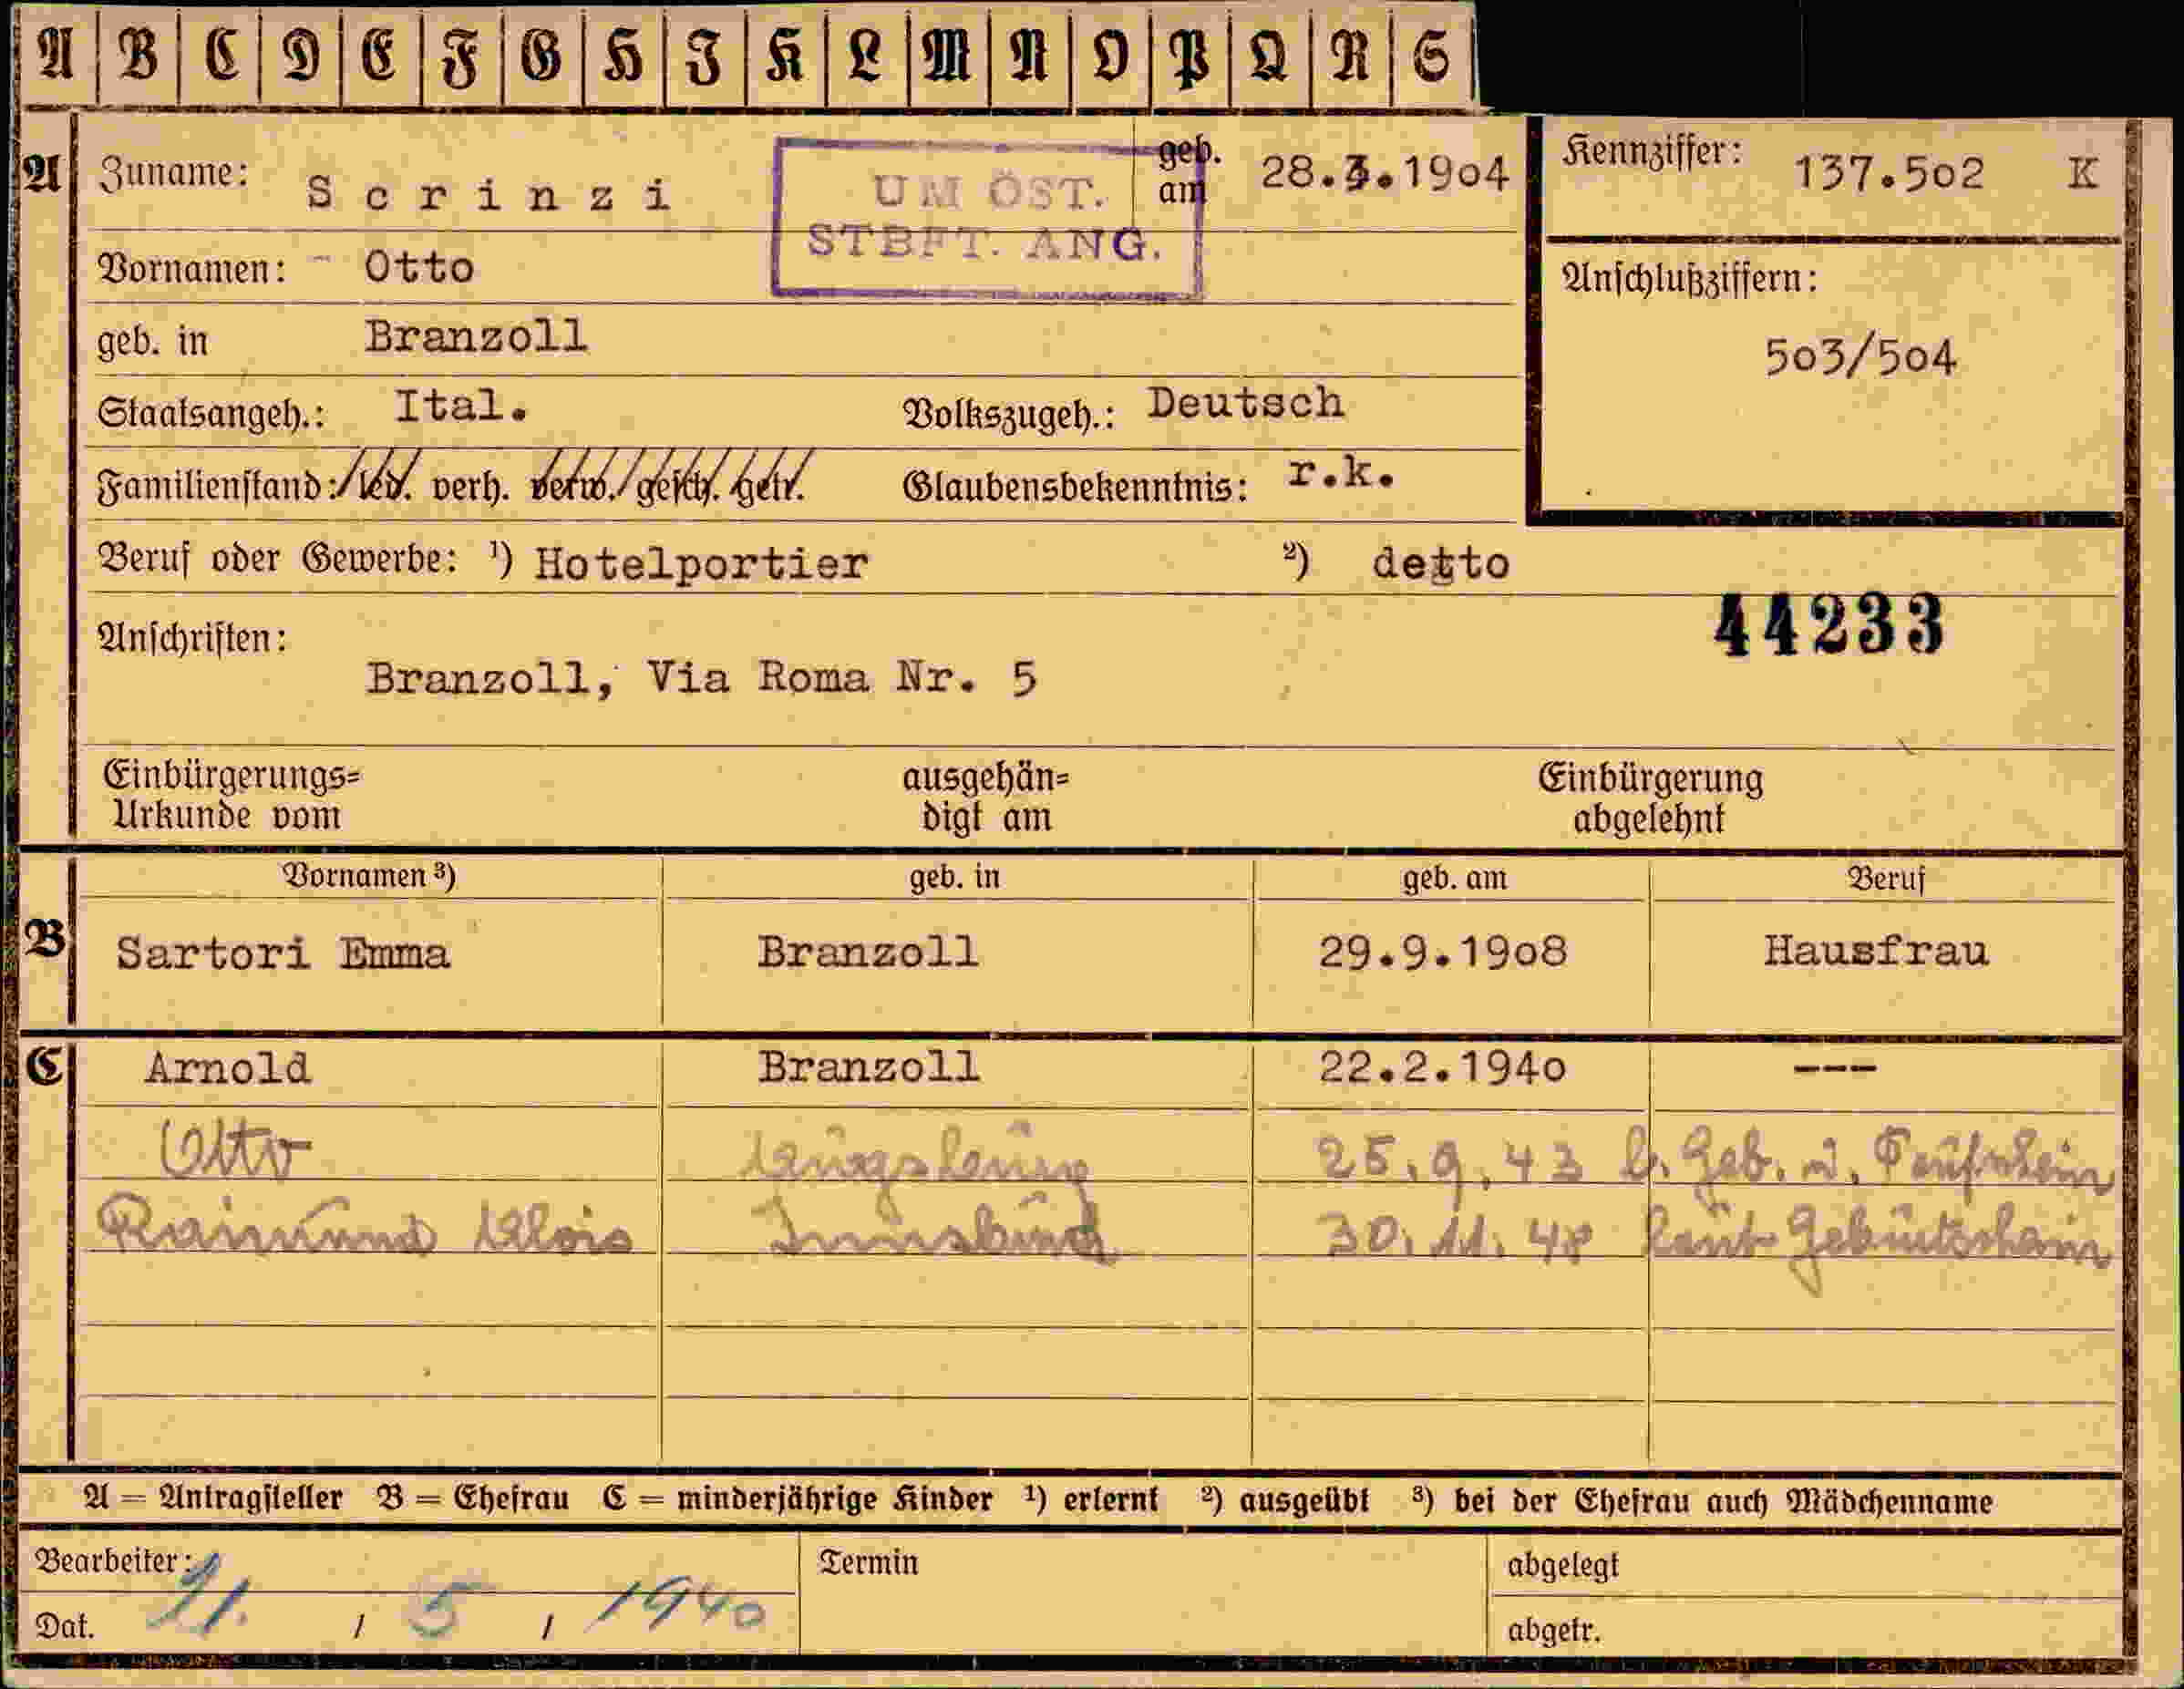 A B C D E F G H I K L M N O P Q R S
A Zuname: Scrinzi geb. am 28.3.1904
UM ÖST.
STBFT. ANG.
Kennziffer: 137.502 K
Vornamen: Otto
Anschlußziffern:
503/504
geb. in Branzoll
Staatsangeh.: Ital. Volkszugeh.: Deutsch
Familienstand: led. verh. verw. gesch. getr. Glaubensbekenntnis: r.k.
Beruf oder Gewerbe: ¹) Hotelportier ²) detto
44233
Anschriften:
Branzoll, Via Roma Nr. 5
Einbürgerungs= ausgehän= Einbürgerung
Urkunde vom digt am abgelehnt
Vornamen ³) geb. in geb. am Beruf
B Sartori Emma Branzoll 29.9.1908 Hausfrau
C Arnold Branzoll 22.2.1940 ---
Otto Augsburg 25.9.43 l. Geb. u. Taufschein
Raimund Alois Innsbruck 30.11.48 laut Geburtsschein
A = Antragsteller B = Ehefrau C = minderjährige Kinder ¹) erlernt ²) ausgeübt ³) bei der Ehefrau auch Mädchenname
Bearbeiter: Termin abgelegt
Dat. / 5 / 1940 abgetr.